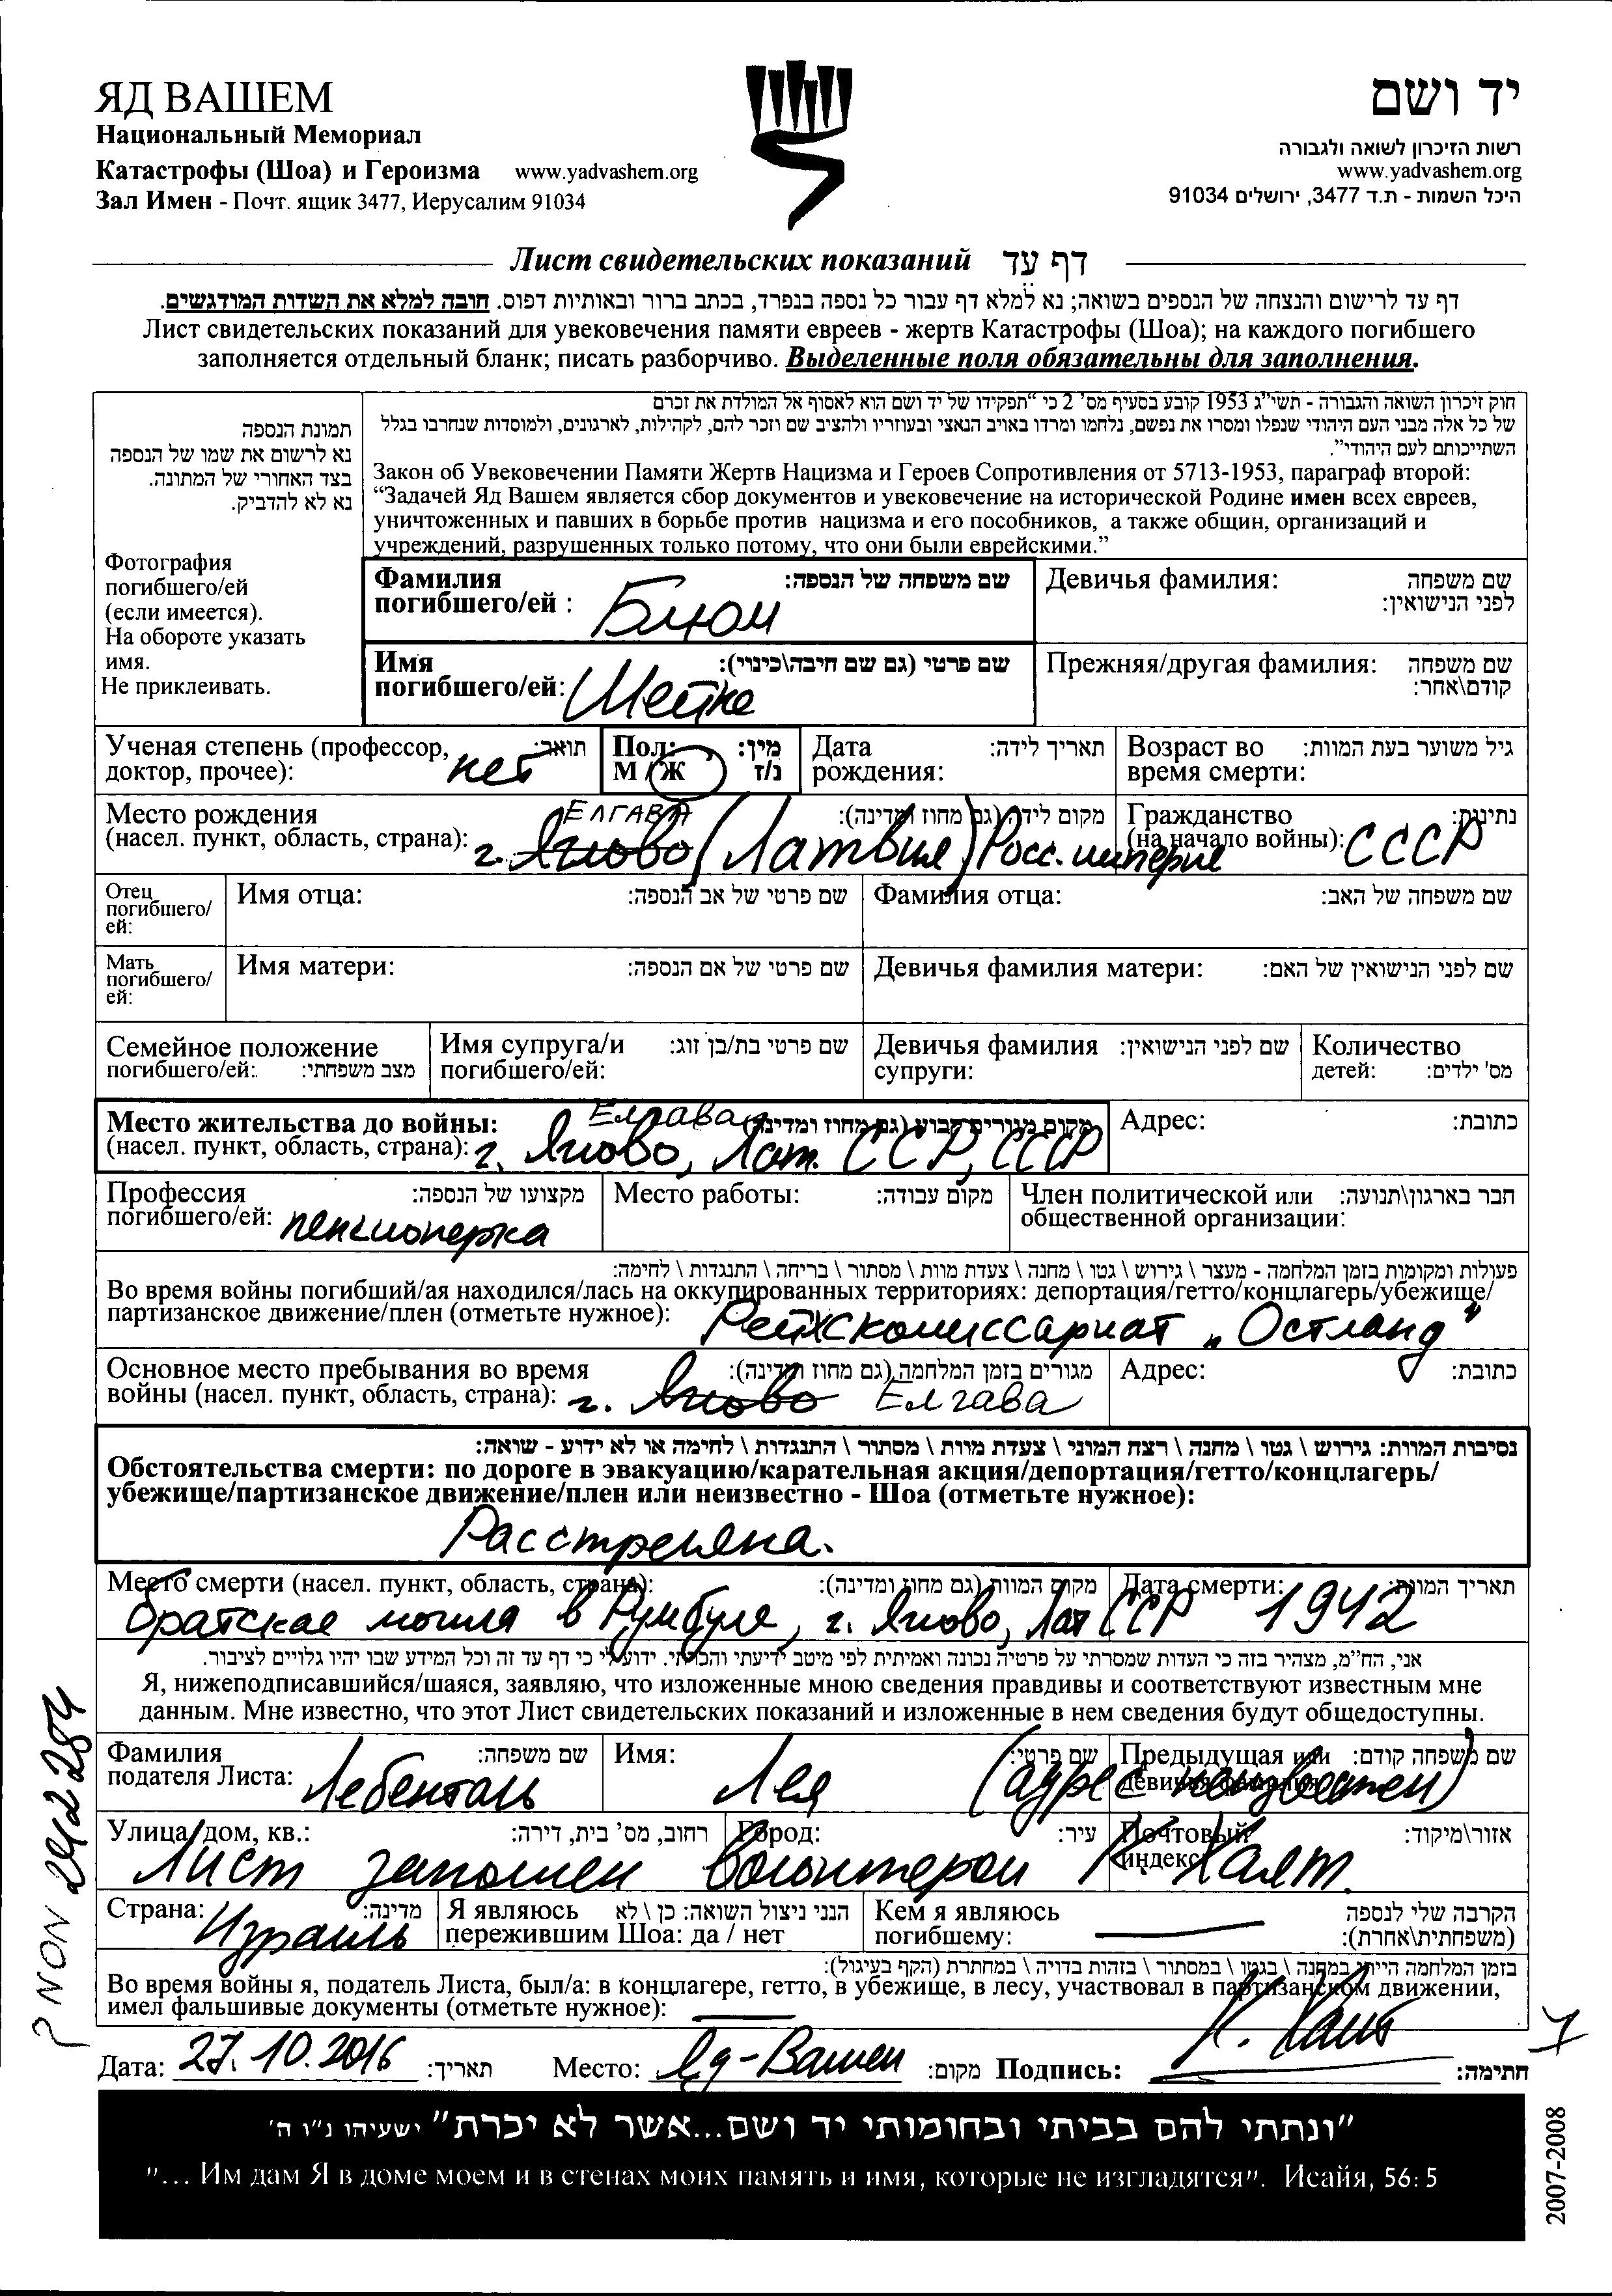 ЯД ВАШЕМ
Национальный Мемориал
Катастрофы (Шоа) и Героизма www.yadvashem.org
Зал Имен - Почт. ящик 3477, Иерусалим 91034
יד ושם
רשות הזיכרון לשואה ולגבורה
www.yadvashem.org
היכל השמות - ת.ד 3477, ירושלים 91034
Лист свидетельских показаний דף עד
דף עד לרישום והנצחה של הנספים בשואה; נא למלא דף עבור כל נספה בנפרד, בכתב ברור ובאותיות דפוס. חובה למלא את השדות המודגשים.
Лист свидетельских показаний для увековечения памяти евреев - жертв Катастрофы (Шоа); на каждого погибшего
заполняется отдельный бланк; писать разборчиво. Выделенные поля обязательны для заполнения.
תמונת הנספה
נא לרשום את שמו של הנספה
בצד האחורי של המתונה.
נא לא להדביק.
Фотография
погибшего/ей
(если имеется).
На обороте указать
имя.
Не приклеивать.
חוק זיכרון השואה והגבורה - תשי"ג 1953 קובע בסעיף מס' 2 כי "תפקידו של יד ושם הוא לאסוף אל המולדת את זכרם
של כל אלה מבני העם היהודי שנפלו ומסרו את נפשם, נלחמו ומרדו באויב הנאצי ובעוזריו ולהציב שם וזכר להם, לקהילות, לארגונים, ולמוסדות שנחרבו בגלל
השתייכותם לעם היהודי".
Закон об Увековечении Памяти Жертв Нацизма и Героев Сопротивления от 5713-1953, параграф второй:
"Задачей Яд Вашем является сбор документов и увековечение на исторической Родине имен всех евреев,
уничтоженных и павших в борьбе против нацизма и его пособников, а также общин, организаций и
учреждений, разрушенных только потому, что они были еврейскими."
Фамилия שם משפחה של הנספה:
погибшего/ей : Блюм
Девичья фамилия: שם משפחה
לפני הנישואין:
Имя שם פרטי (גם שם חיבה\כינוי):
погибшего/ей:
Прежняя/другая фамилия: שם משפחה
קודם\אחר:
Ученая степень (профессор, תואר:
доктор, прочее): нет
Пол: מין:
М / Ж ז/נ
Дата תאריך לידה:
рождения:
Возраст во גיל משוער בעת המוות:
время смерти:
Место рождения ЕЛГАВА מקום לידה (גם מחוז ומדינה):
(насел. пункт, область, страна): г. Ялово (Латвия) Росс. империя
Гражданство נתינות:
(на начало войны): СССР
Отец
погибшего/
ей:
Имя отца: שם פרטי של אב הנספה:
Фамилия отца: שם משפחה של האב:
Мать
погибшего/
ей:
Имя матери: שם פרטי של אם הנספה:
Девичья фамилия матери: שם לפני הנישואין של האם:
Семейное положение
погибшего/ей: מצב משפחתי:
Имя супруга/и שם פרטי בת/בן זוג:
погибшего/ей:
Девичья фамилия שם לפני הנישואין:
супруги:
Количество
детей: מס' ילדים:
Место жительства до войны: Елгава מקום מגורים קבוע (גם מחוז ומדינה)
(насел. пункт, область, страна): г. Ялово, Лат. ССР, СССР
Адрес: כתובת:
Профессия מקצועו של הנספה:
погибшего/ей: пенсионерка
Место работы: מקום עבודה:
Член политической или חבר בארגון\תנועה:
общественной организации:
פעולות ומקומות בזמן המלחמה - מעצר \ גירוש \ גטו \ מחנה \ צעדת מוות \ מסתור \ בריחה \ התנגדות \ לחימה:
Во время войны погибший/ая находился/лась на оккупированных территориях: депортация/гетто/концлагерь/убежище/
партизанское движение/плен (отметьте нужное): Рейхскомиссариат „Остланд"
Основное место пребывания во время מגורים בזמן המלחמה (גם מחוז ומדינה):
войны (насел. пункт, область, страна): г. Ялово Елгава
Адрес: כתובת:
נסיבות המוות: גירוש \ גטו \ מחנה \ רצח המוני \ צעדת מוות \ מסתור \ התנגדות \ לחימה או לא ידוע - שואה:
Обстоятельства смерти: по дороге в эвакуацию/карательная акция/депортация/гетто/концлагерь/
убежище/партизанское движение/плен или неизвестно - Шоа (отметьте нужное):
Расстреляна.
Место смерти (насел. пункт, область, страна): מקום המוות (גם מחוז ומדינה):
братская могила в Румбуле, г. Ялово, Лат ССР
Дата смерти: תאריך המוות:
1942
אני, הח"מ, מצהיר בזה כי העדות שמסרתי על פרטיה נכונה ואמיתית לפי מיטב ידיעתי והכרתי. ידוע לי כי דף עד זה וכל המידע שבו יהיו גלויים לציבור.
Я, нижеподписавшийся/шаяся, заявляю, что изложенные мною сведения правдивы и соответствуют известным мне
данным. Мне известно, что этот Лист свидетельских показаний и изложенные в нем сведения будут общедоступны.
Фамилия שם משפחה:
подателя Листа: Лебенталь
Имя: שם פרטי:
Лея (адрес неизвестен)
Предыдущая или שם משפחה קודם:
девичья фамилия
Улица, дом, кв.: רחוב, מס' בית, דירה:
Город: עיר:
Почтовый אזור\מיקוד:
индекс:
Лист заполнен волонтером К. Хаят.
Страна: מדינה:
Израиль
Я являюсь הנני ניצול השואה: כן \ לא
пережившим Шоа: да / нет
Кем я являюсь הקרבה שלי לנספה
погибшему: (משפחתית\אחרת):
בזמן המלחמה הייתי במחנה \ בגטו \ במסתור \ בזהות בדויה \ במחתרת (הקף בעיגול):
Во время войны я, податель Листа, был/а: в концлагере, гетто, в убежище, в лесу, участвовал в партизанском движении,
имел фальшивые документы (отметьте нужное):
Дата: 27.10.2016 תאריך: Место: Яд-Вашем מקום: Подпись: К. Хаят חתימה:
"ונתתי להם בביתי ובחומותי יד ושם...אשר לא יכרת" ישעיהו נ"ו ה'
"... Им дам Я в доме моем и в стенах моих память и имя, которые не изгладятся". Исайя, 56:5
2007-2008